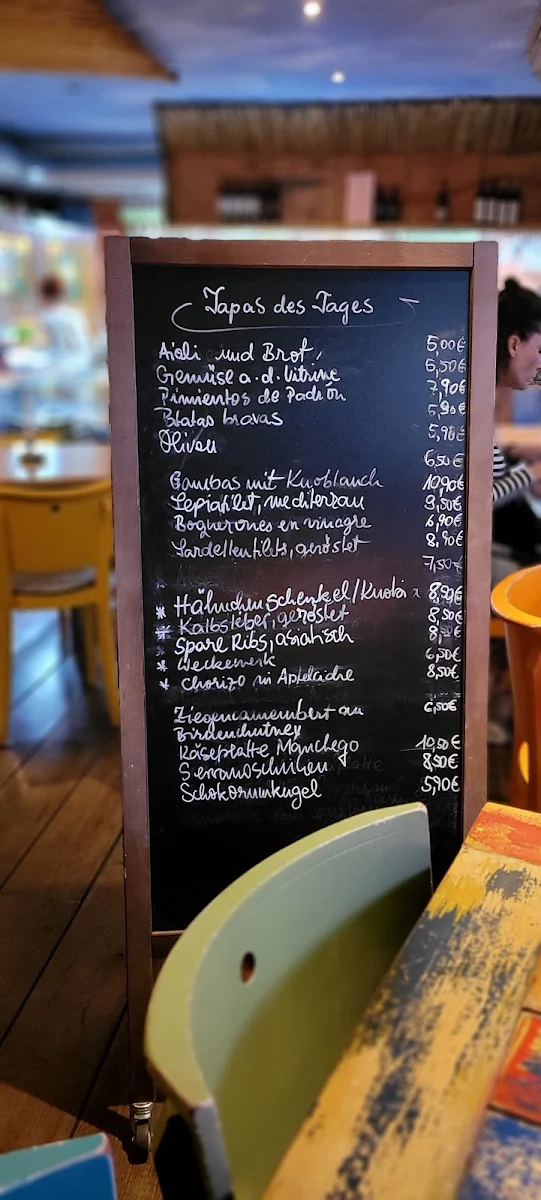 Tapas des Tages
Aioli und Brot, 5,00€
Gemüse a. d. Vitrine 6,50€
Pimientos de Padrón 7,90€
Btatas bravas 5,90€
Oliven 5,90€
6,50€
Gambas mit Knoblauch 10,90€
Sepiafilet, mediterran 9,50€
Boquerones en vinagre 6,90€
Sardellenfilets, geröstet 8,90€
7,50€
* Hähnchenschenkel/Knobi 8,90€
* Kalbsleber, geröstet 8,50€
* Spare Ribs, asiatisch
* Weckewerk 6,50€
* Chorizo in Apfelcidre 8,50€
Ziegencamembert an 6,50€
Birnenchutney
Käseplatte Manchego 10,50€
Serranoschinken 8,50€
Schokorumkugel 5,90€